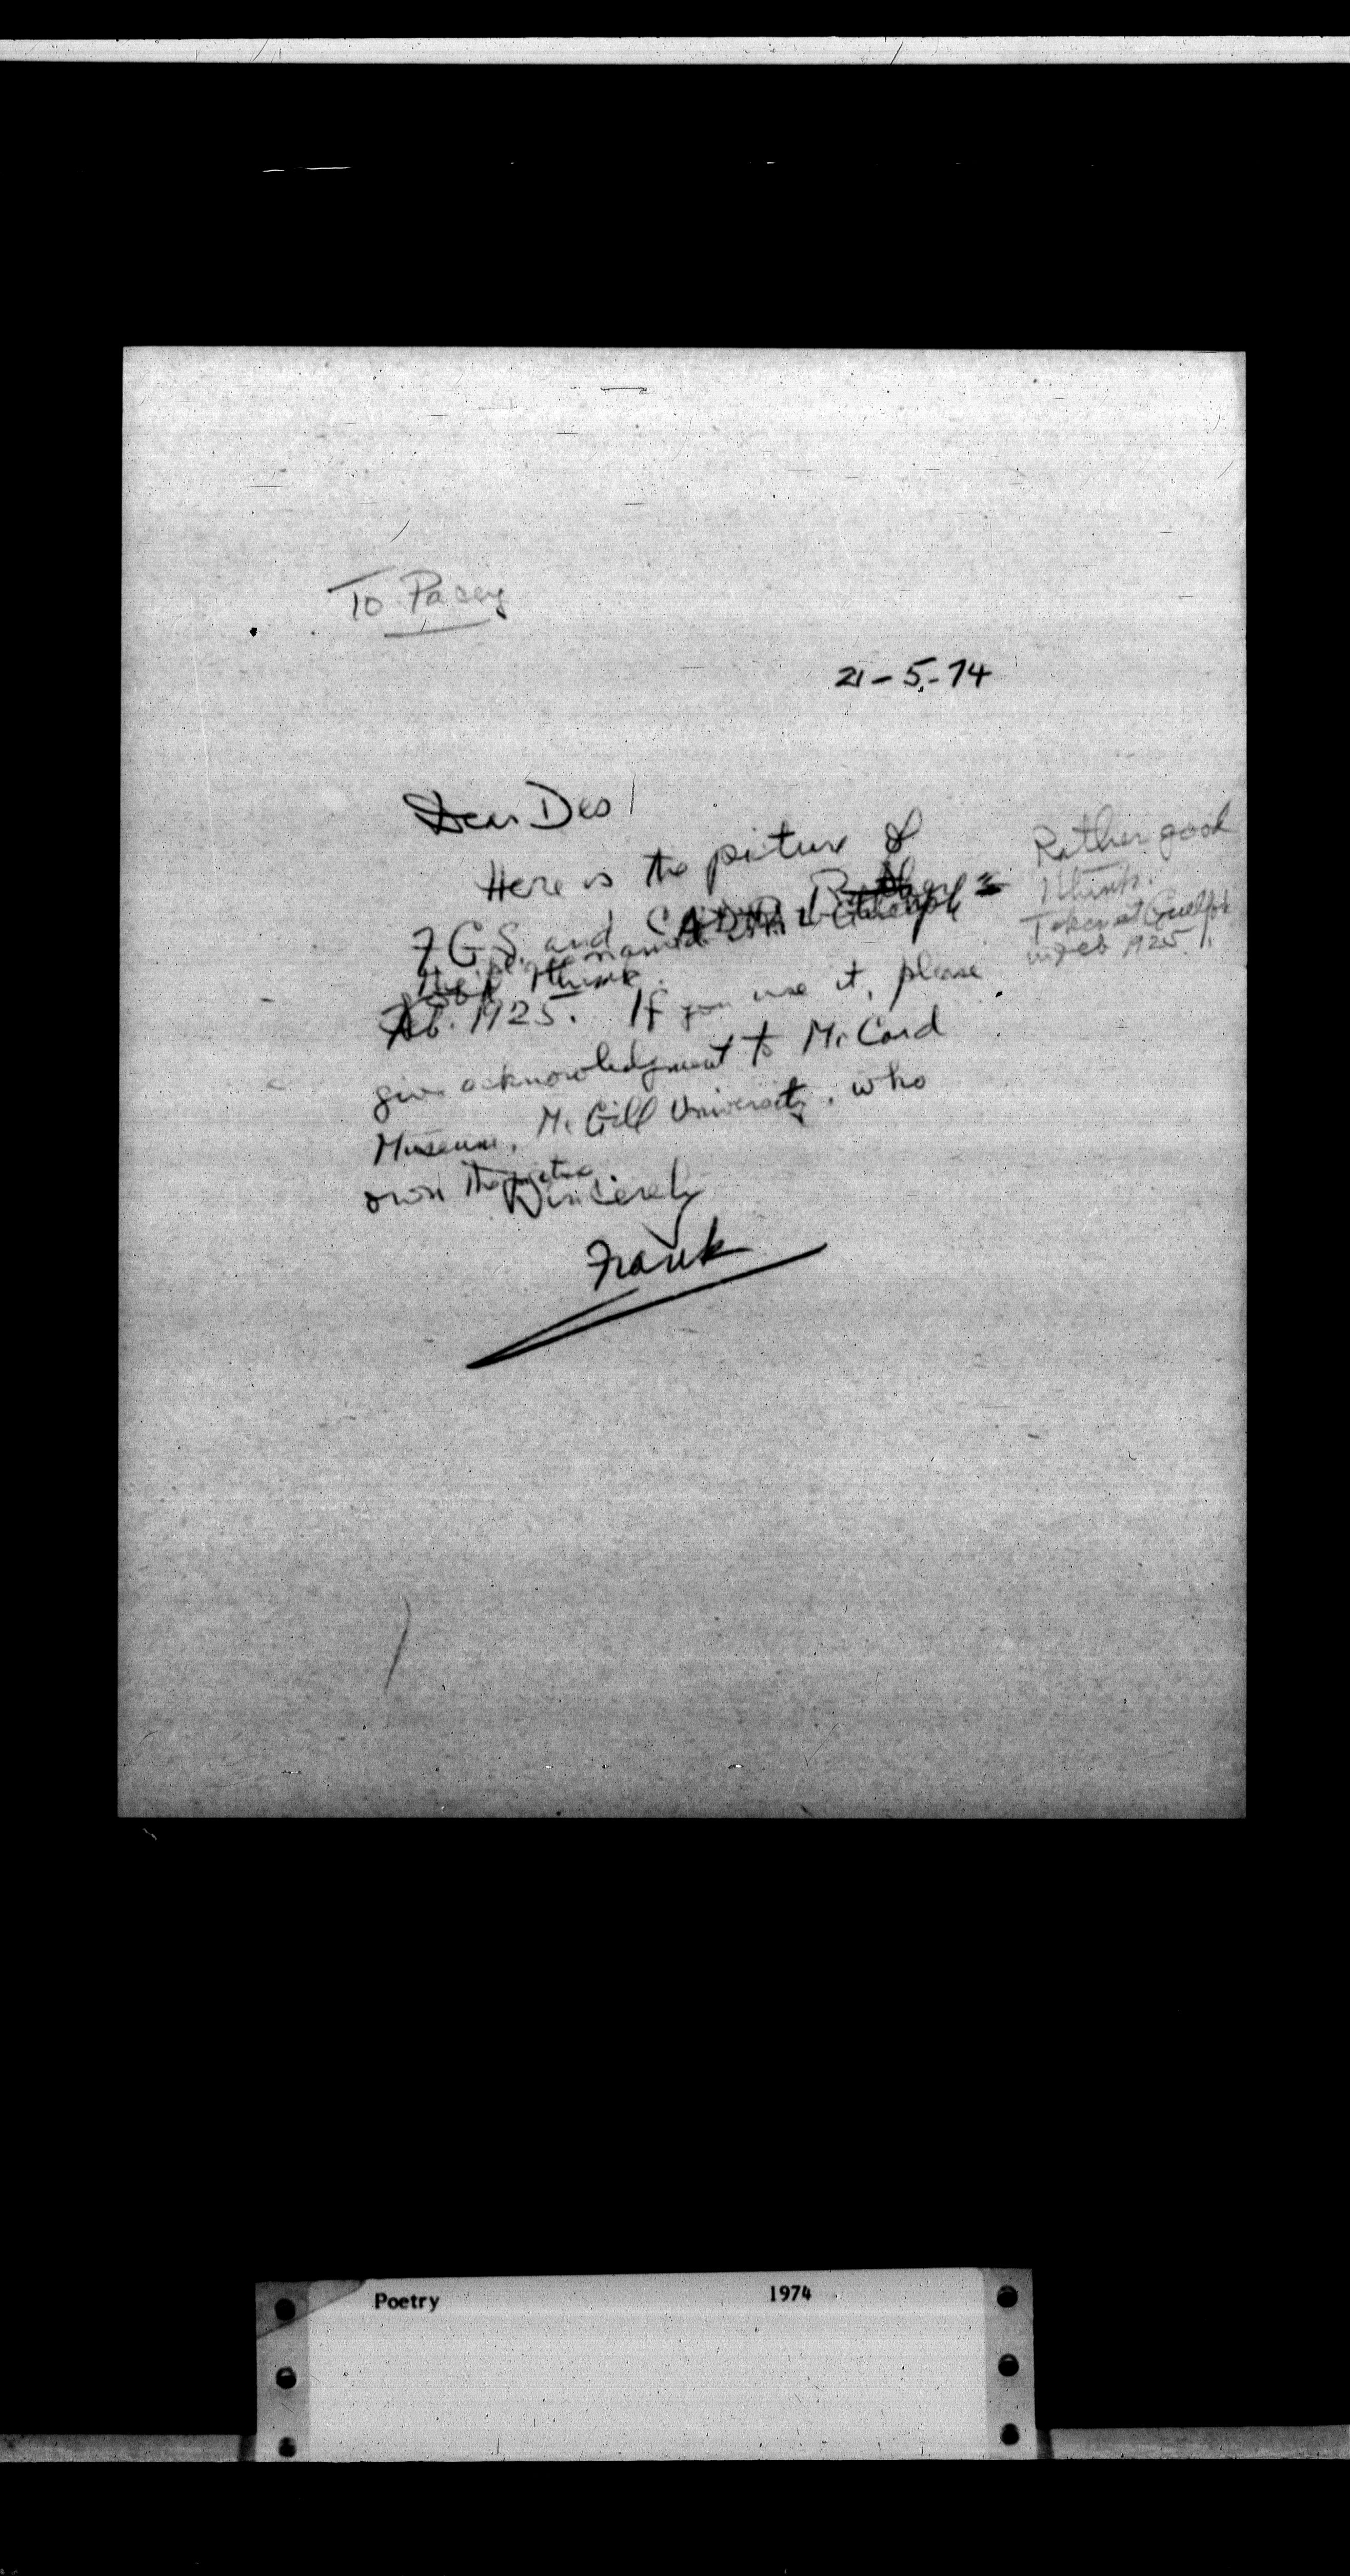 To Pacey
21-5-74
Dear Des
Here is the picture of
F G S. and
Rather good
I think.
Taken at Guelph
in Feb 1925.
I think.
Feb. 1925. If you use it, please
give acknowledgment to McCord
Museum, McGill University, who
own the picture.
Sincerely
Frank
Poetry 1974